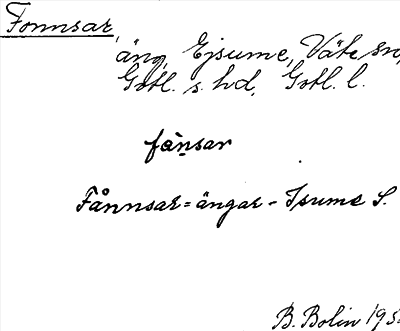 Fonnsar,
äng, Ejsume, Väte sn,
Gotl. s. hd, Gotl. l.
fànsar
Fånnsar=ängar - Isume S.
B. Bolin 195